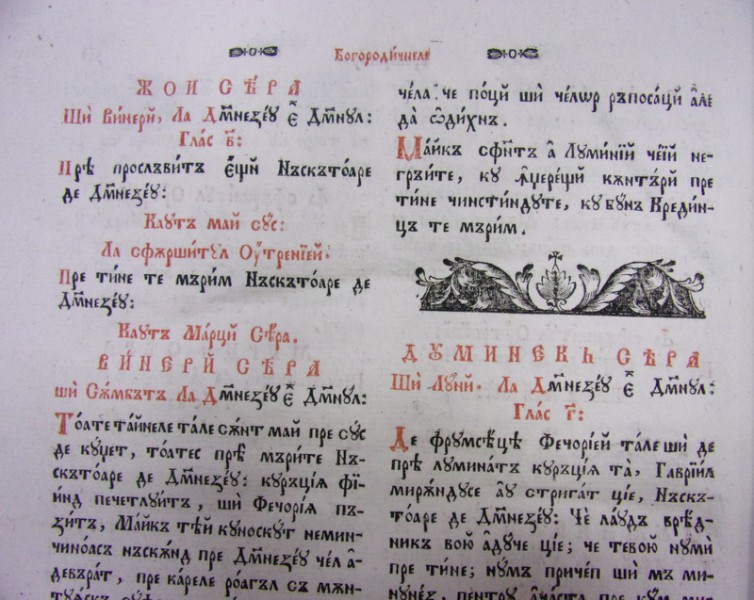 Богоро́дичнеле
ЖОИ СѢ́РА
Ши Ви́нерй, Ла Дм҃незеⷹ є҆́ Дм҃нꙋл:
Гла́с в҃:
Прѣ прослъви́тъ є҆́щй Нъскъто́аре
де Дм҃незе́ⷹ:
Каутъ май сꙋ́с:
Ла сфѫрши́тꙋл Оу҆тре́нїей.
Пре ти́не те мъри́м Нъскъто́аре де
Дм҃незе́ⷹ:
Каутъ Ма́рци Сѣ́ра.
ВИ́НЕРЙ СѢ́РА
ши Сѫ́мбътъ Ла Дм҃незе́ⷹ є҆́ Дм҃нꙋл:
То́ате та́йнеле та́ле сѫ́нт май пре сꙋ́с
де кꙋ́џет, то́ате прѣ мъри́те Нъ-
скъто́аре де Дм҃незе́ⷹ: кꙋръ́цїѧ фї-
и́нд печетлꙋи́тъ, ши Фечорі́ѧ пъ-
зи́тъ, Ма́йкъ те́й кꙋноскꙋ́т немин-
чино́асъ нъскѫ́нд пре Дм҃незе́ⷹ че́л а҆-
девъра́т, пре ка́реле роа́гъл съ мѫн-
че́ла че по́ций ши че́лѡр ръпоса́ций а҆́ле
да̀ ѡ҆ди́хнъ.
Ма́йкъ сфи́нтъ а҆ Лꙋми́нїй че́їй не-
гръи́те, кꙋ ꙗ҆́щере́щй кѫнтъ́рй пре
ти́не чинсти́ндꙋте, кꙋ бꙋ́нъ Креди́н-
цъ те мъри́м.
ДꙊМИ́НЕКЪ СѢ́РА
Ши Лꙋ́нй. Ла Дм҃незе́ⷹ є҆́ Дм҃нꙋл:
Гла́с г҃:
Де фрꙋмсѣ́цѣ Фечорі́ей та́ле ши де
прѣ лꙋмина́тъ кꙋръ́цїѧ та̀, Гаврїи́л
мирѫ́ндꙋсе аꙋ стрига́т ці́е, Нъскъ-
то́аре де Дм҃незе́ⷹ: Че́ ла́ꙋдъ вре́д-
никъ вою̀ а҆дꙋ́че ці́е; че те́вою̀ нꙋмѝ
пре ти́не; нꙋ́мъ приче́п ши мъ ми-
нꙋне́з,